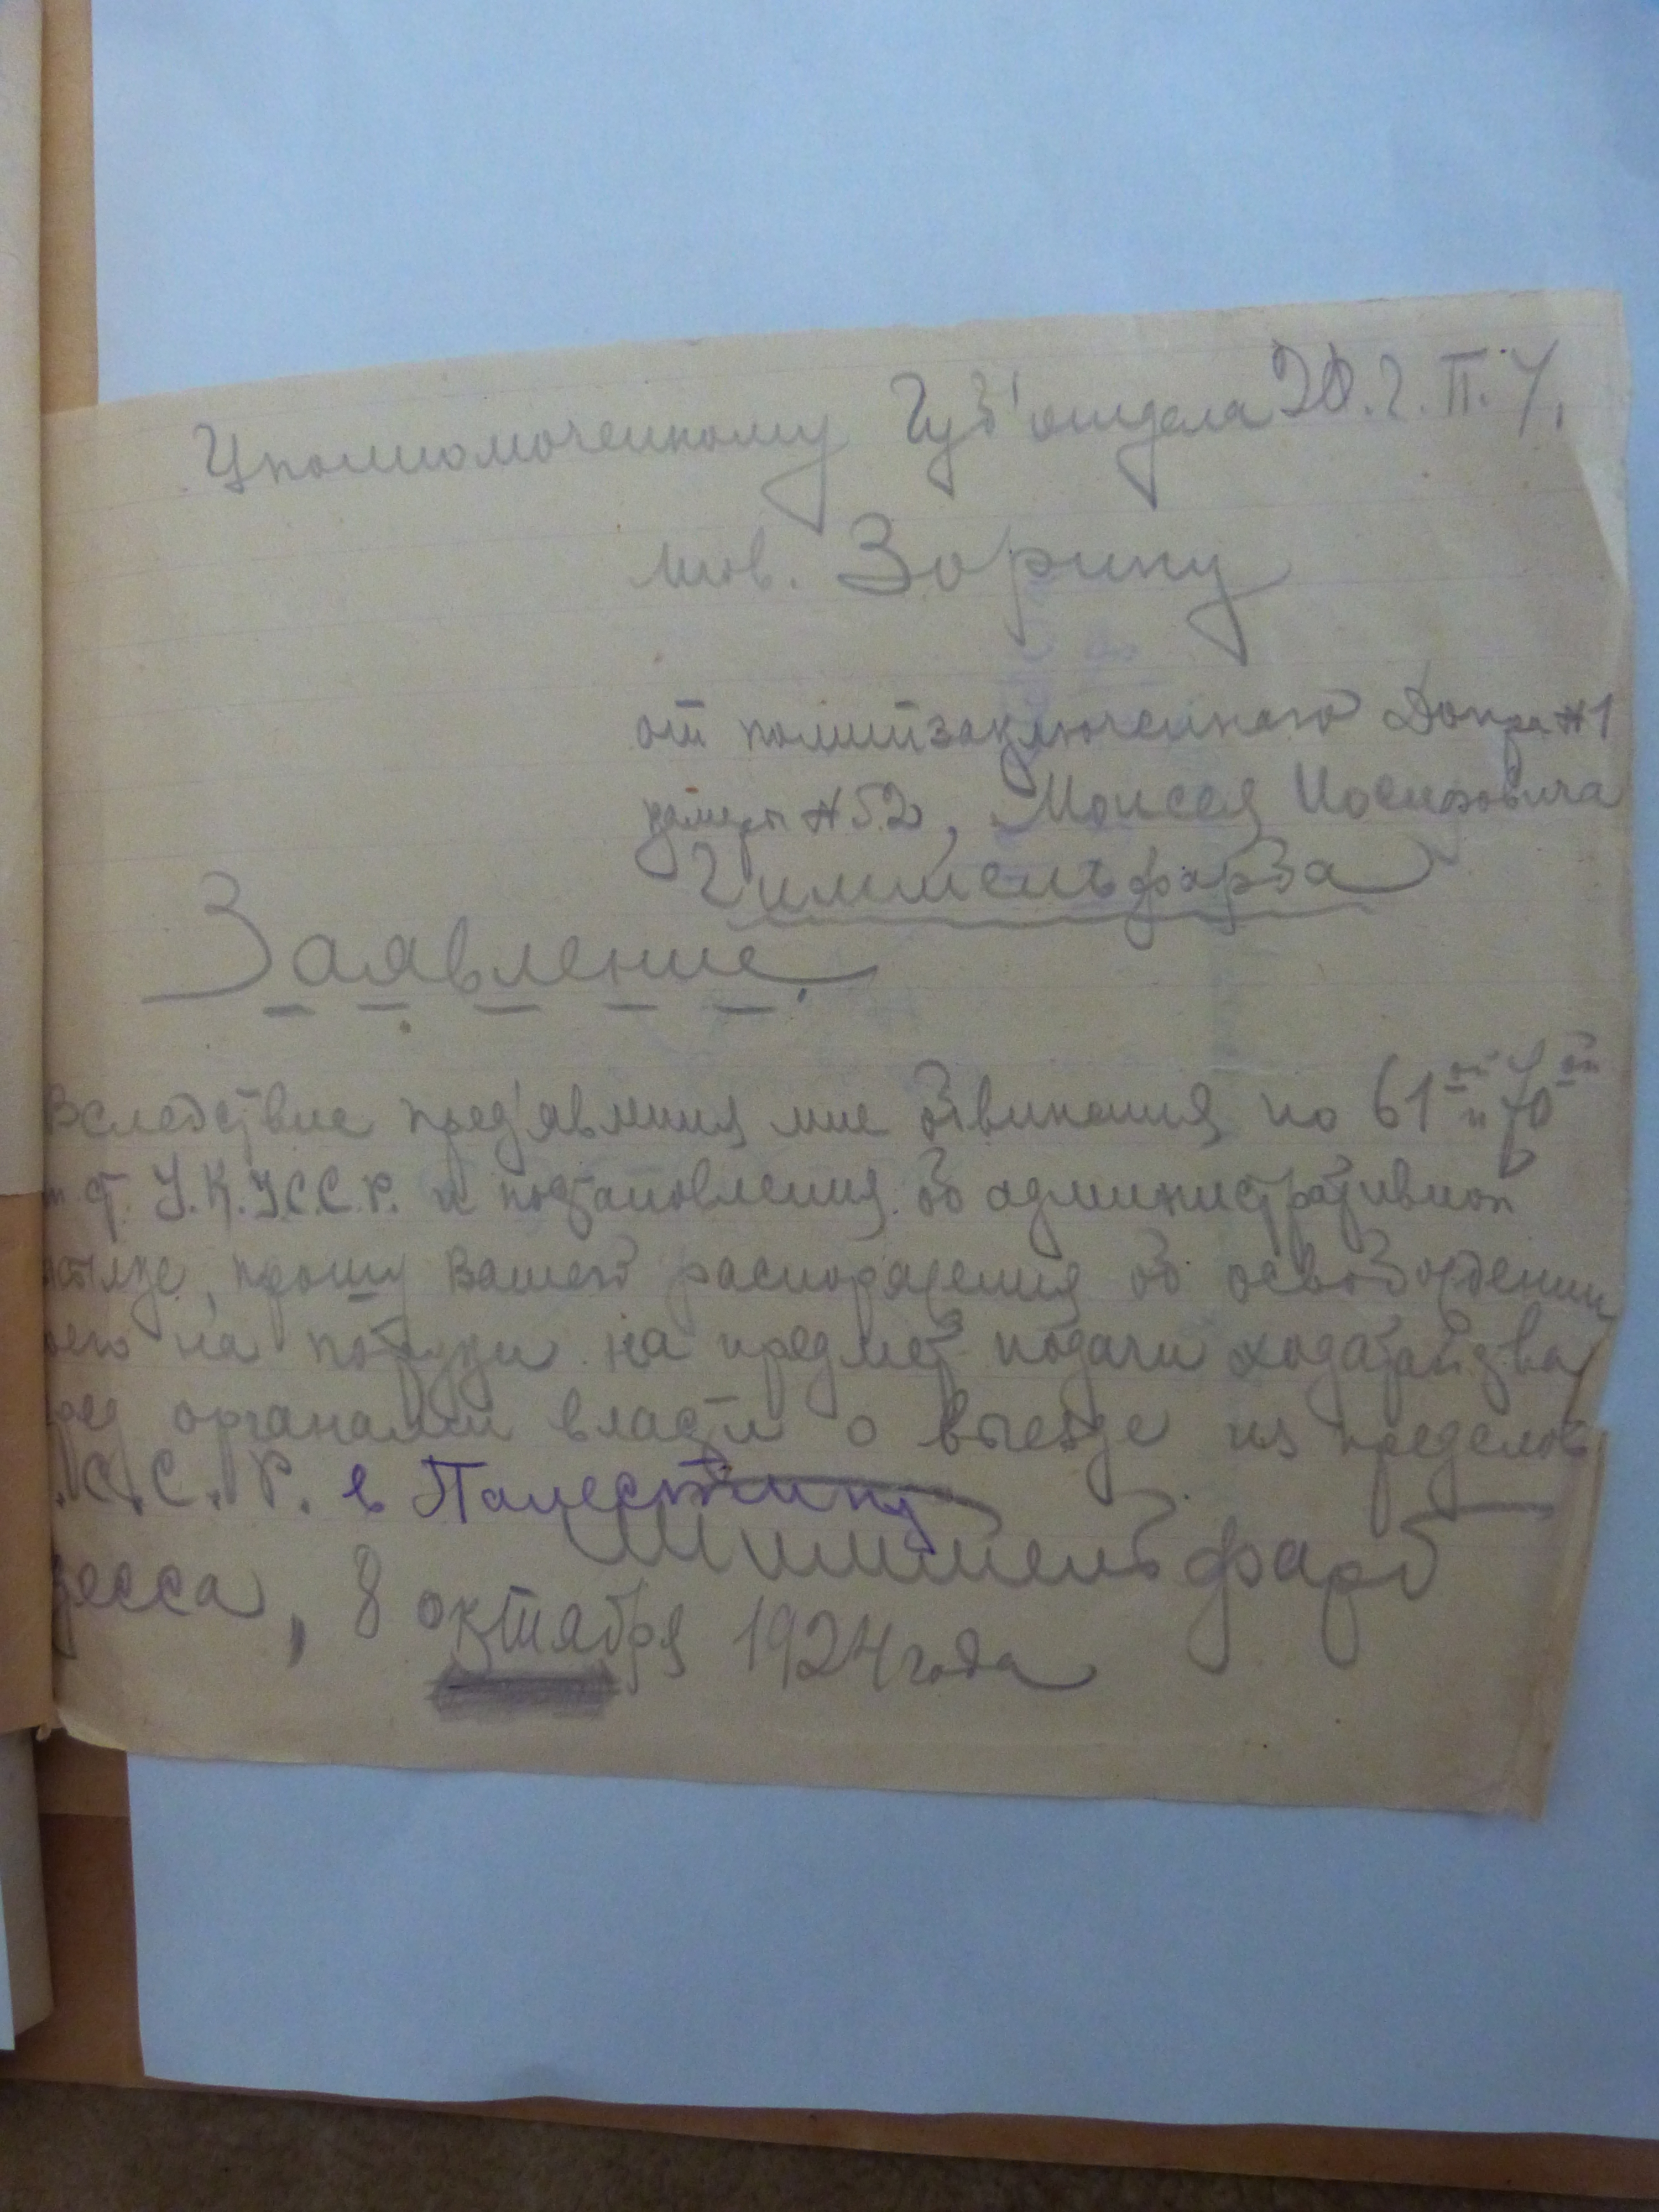 Уполномоченному Губ'отдела О.Г.П.У.
тов. Зорину
от политзаключенного Допра №1
камеры №52, Моисея Иосифовича
Гиммельфарба
Заявление.
Вследствие пред'явления мне обвинения по 61ой и 70ой
ст. У.К.У.С.С.Р. и постановления об административной
ссылке, прошу Вашего распоряжения об освобождении
моего на поруки на предмет подачи ходатайства
перед органами власти о выезде из пределов
С.С.Р. в Палестину
Гиммельфарб
десса, 8 октября 1924 года